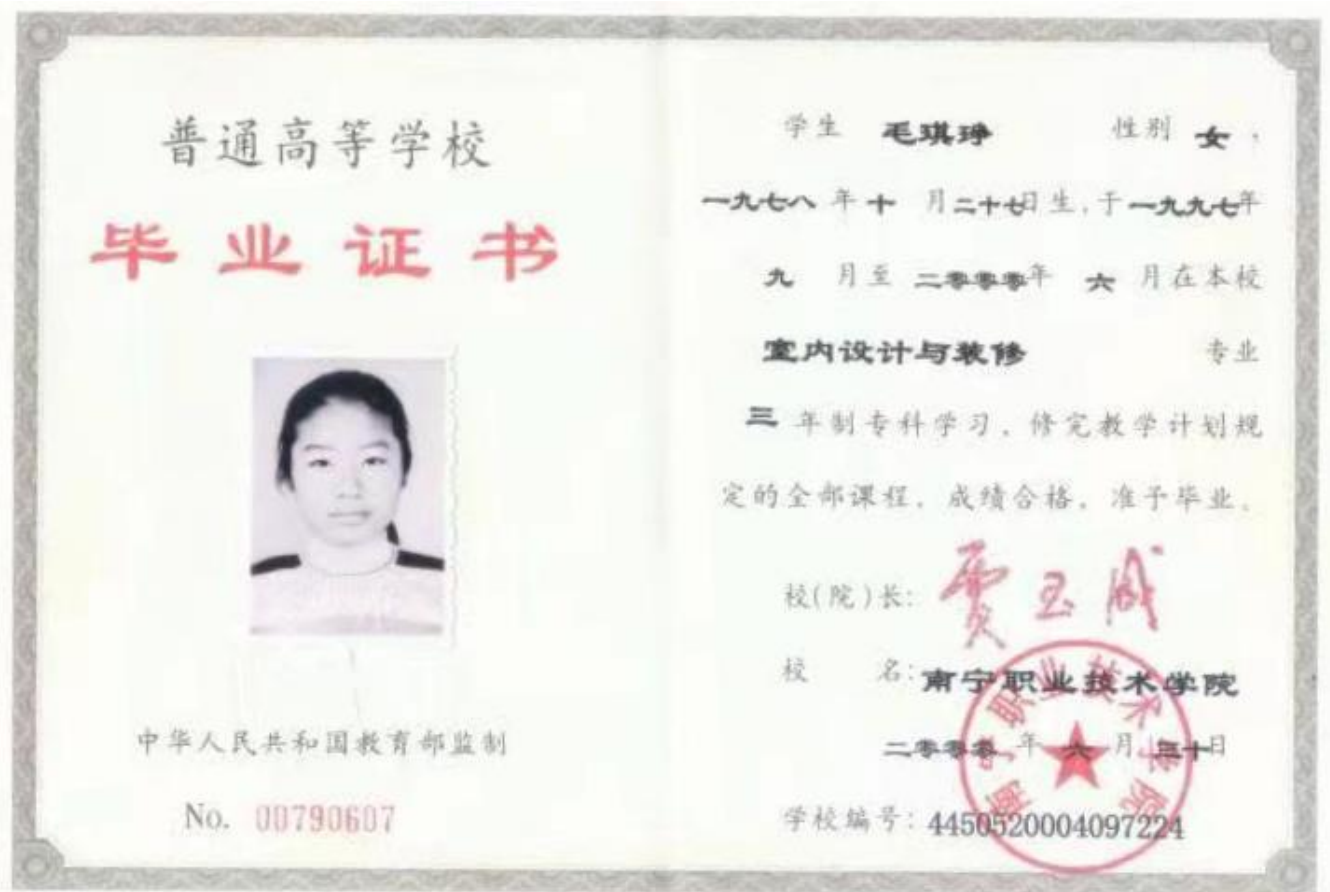 普通高等学校
毕业证书
中华人民共和国教育部监制
No. 00790607
学生 毛琪琤 性别 女，
一九七八年十月二十七日生，于一九九七年
九月至二零零零年六月在本校
室内设计与装修 专业
三年制专科学习，修完教学计划规
定的全部课程，成绩合格，准予毕业。
校(院)长：贾玉成
校名：南宁职业技术学院
二零零零年六月三十日
学校编号：4450520004097224
南宁职业技术学院